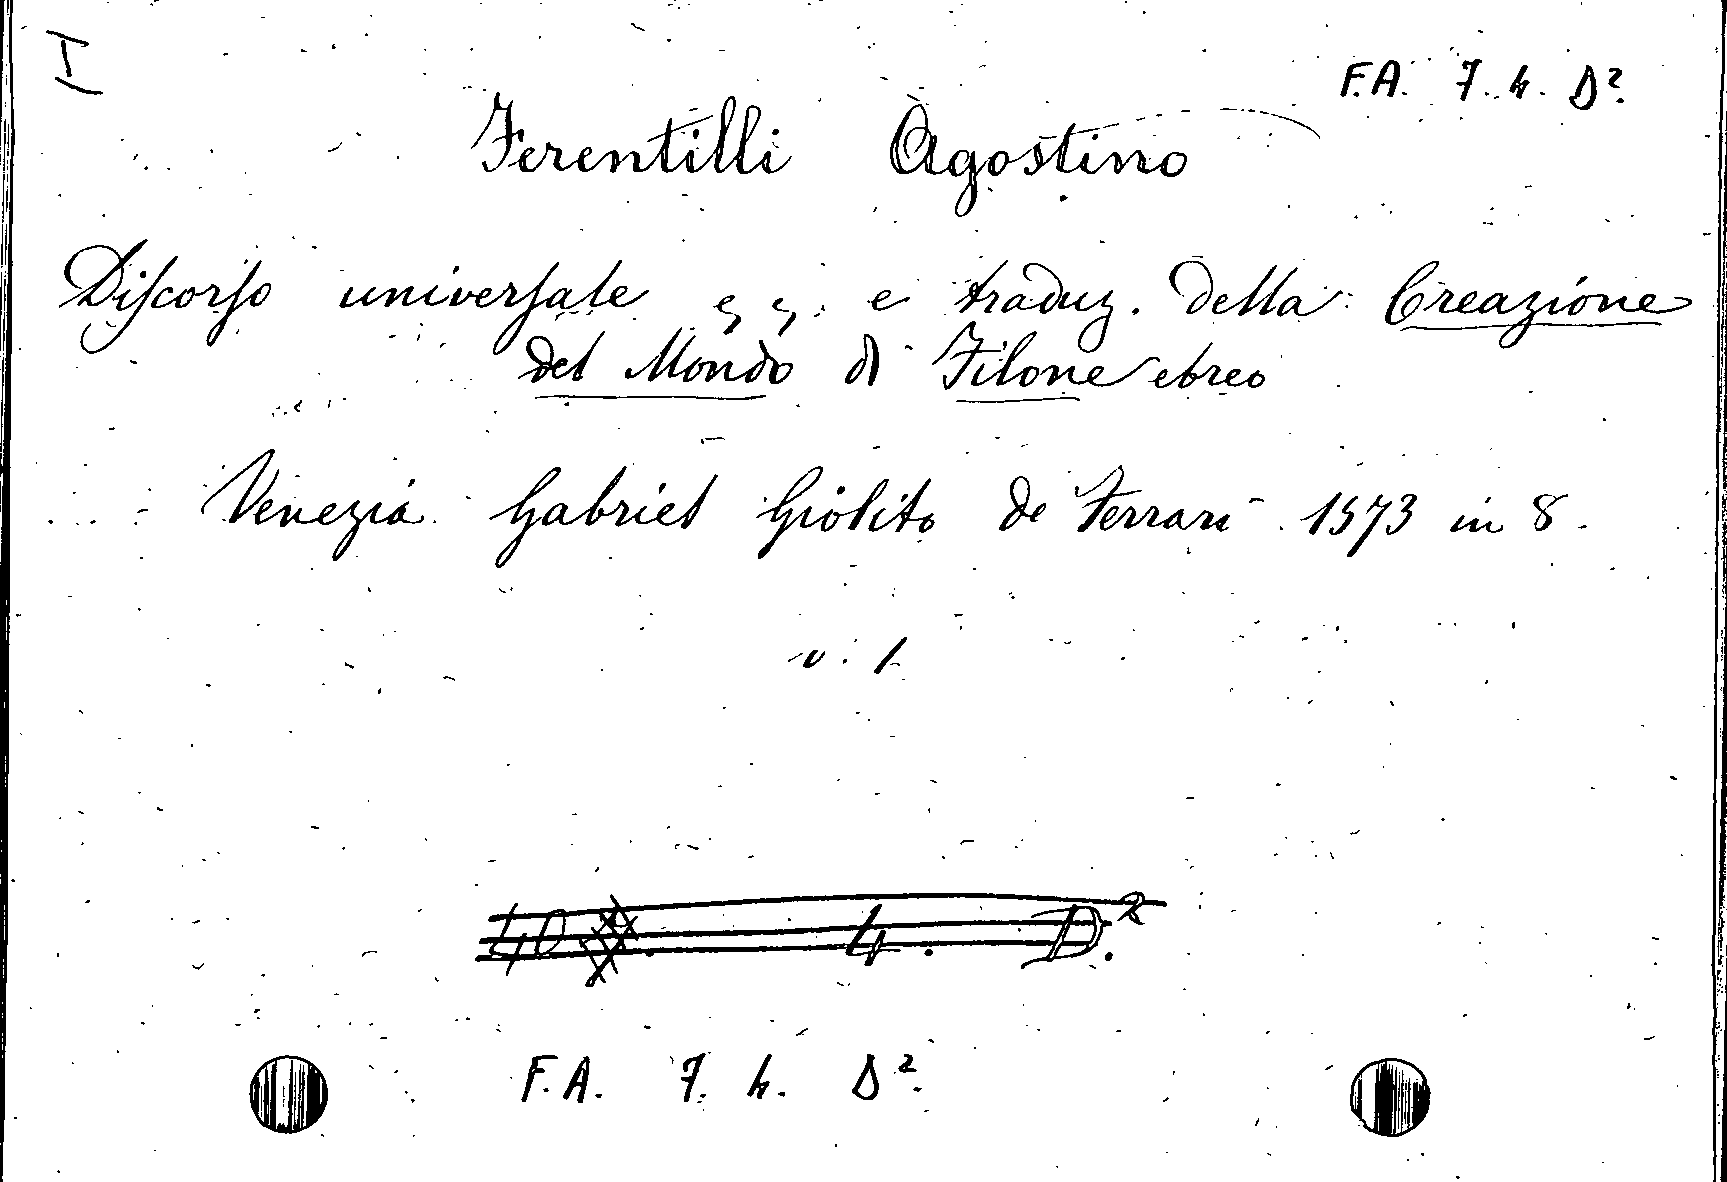 F.A. 7. 4. D².
Ferentilli Agostino
Discorso universale e traduz. della Creazione
del Mondo di Filone ebreo
Venezia Gabriel Giolito de Ferrari 1573 in 8.
v. 1
4. D.²
F.A. 7. 4. D².